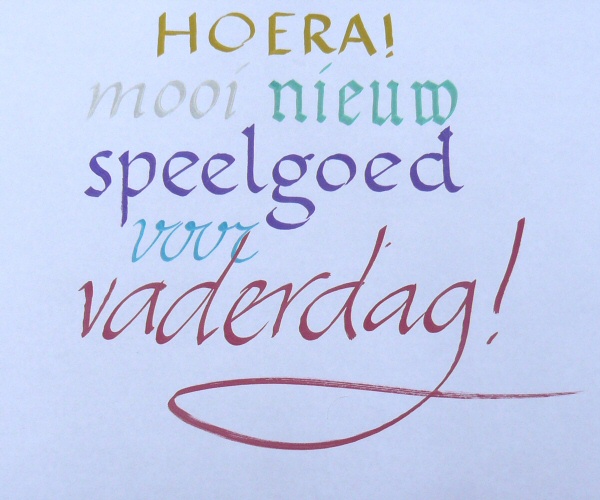 HOERA!
mooi nieuw
speelgoed
voor
vaderdag!